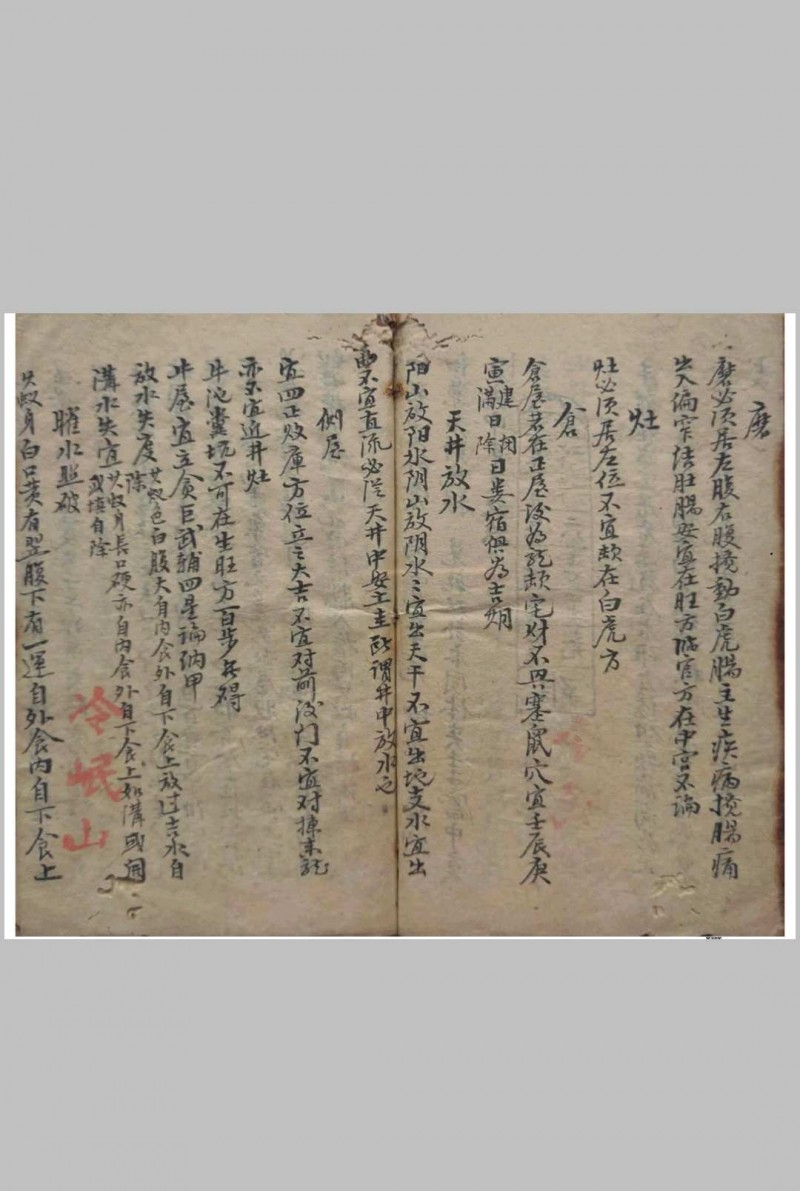 磨
磨必须居左腹右腹搅動白虎腸主生疾病搅腸痛
出入偏窄结肚腸安宜在旺方临官方在中宫不論
灶
灶必须居左位不宜在白虎方
倉
倉屋若在正屋后為宅财不興塞鼠穴宜壬辰庚
寅滿日建闭除日娄宿俱為吉
天井放水
阳山放阳水阴山放阴水水宜出天干不宜出地支水宜出
不宜直流必从天井中安土主所谓井中放水也
侧屋
宜四正败庫方位立之大吉不宜对前后门不宜对
亦不宜近井灶
牛池糞坑不可在生旺方百步無碍
牛屋宜立贪巨武輔四星論纳甲
放水失度白腹大自内食外自下食上放过吉水自
除
溝水失宜身長口硬亦自内食外自下食上如溝或闭
或填自除
水照破
身白口黄有翌腹下有一運自外食内自下食上
冷岷山